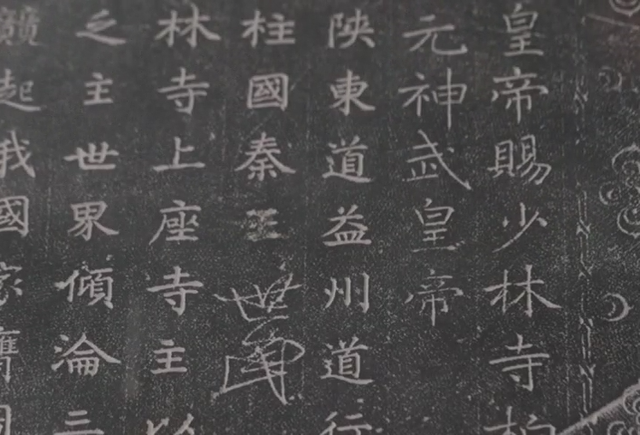 皇帝賜少林寺柏
元神武皇帝
陝東道益州道行
柱國秦王世民
林寺上座寺主以
之主世界傾淪三
起我國家膺